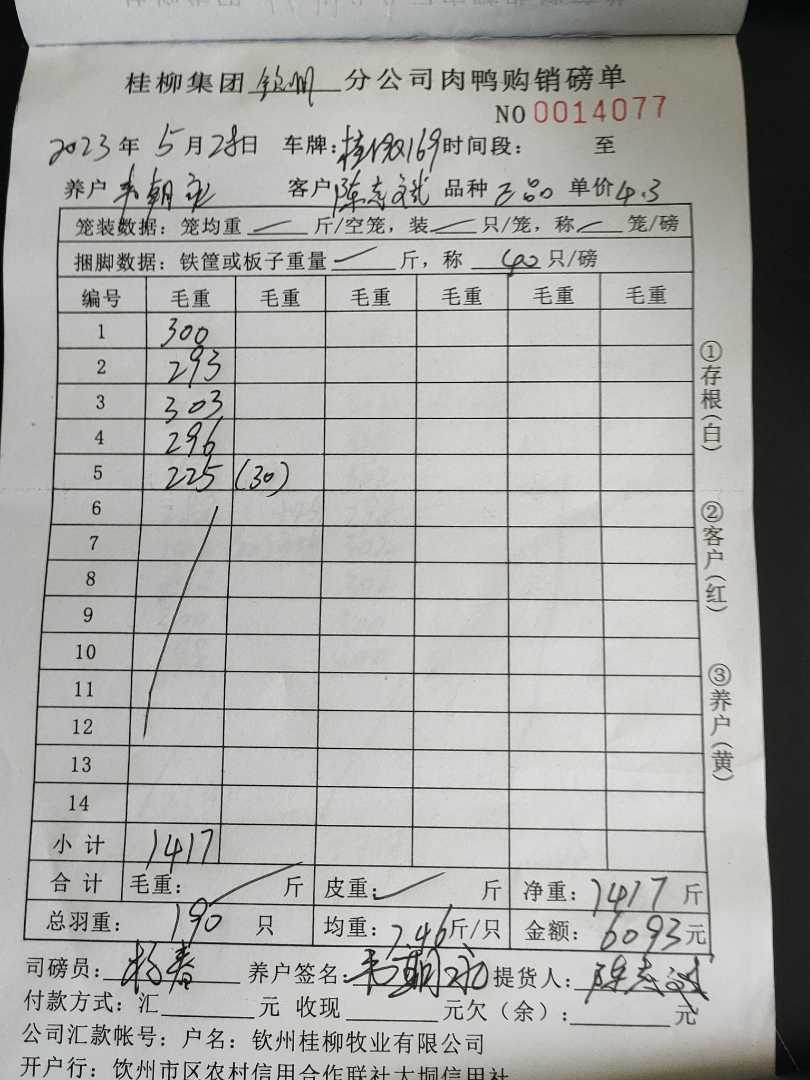 桂柳集团钦州分公司肉鸭购销磅单
NO 0014077
2023年5月28日 车牌:桂 169 时间段: 至
养户 韦朝永 客户 陈志斌 品种 正品 单价 4.3
笼装数据: 笼均重 斤/空笼, 装 只/笼, 称 笼/磅
捆脚数据: 铁筐或板子重量 斤, 称 40 只/磅
编号 毛重 毛重 毛重 毛重 毛重 毛重
1 300
2 293
3 303
4 296
5 225 (30)
6
7
8
9
10
11
12
13
14
小计 1417
合计 毛重: 斤 皮重: 斤 净重: 1417 斤
总羽重: 190 只 均重: 7.46 斤/只 金额: 6093 元
司磅员: 杨春 养户签名: 韦朝永 提货人: 陈志斌
付款方式: 汇 元 收现 元欠(余): 元
公司汇款帐号: 户名: 钦州桂柳牧业有限公司
开户行: 钦州市区农村信用合作联社大垌信用社
①存根(白)
②客户(红)
③养户(黄)